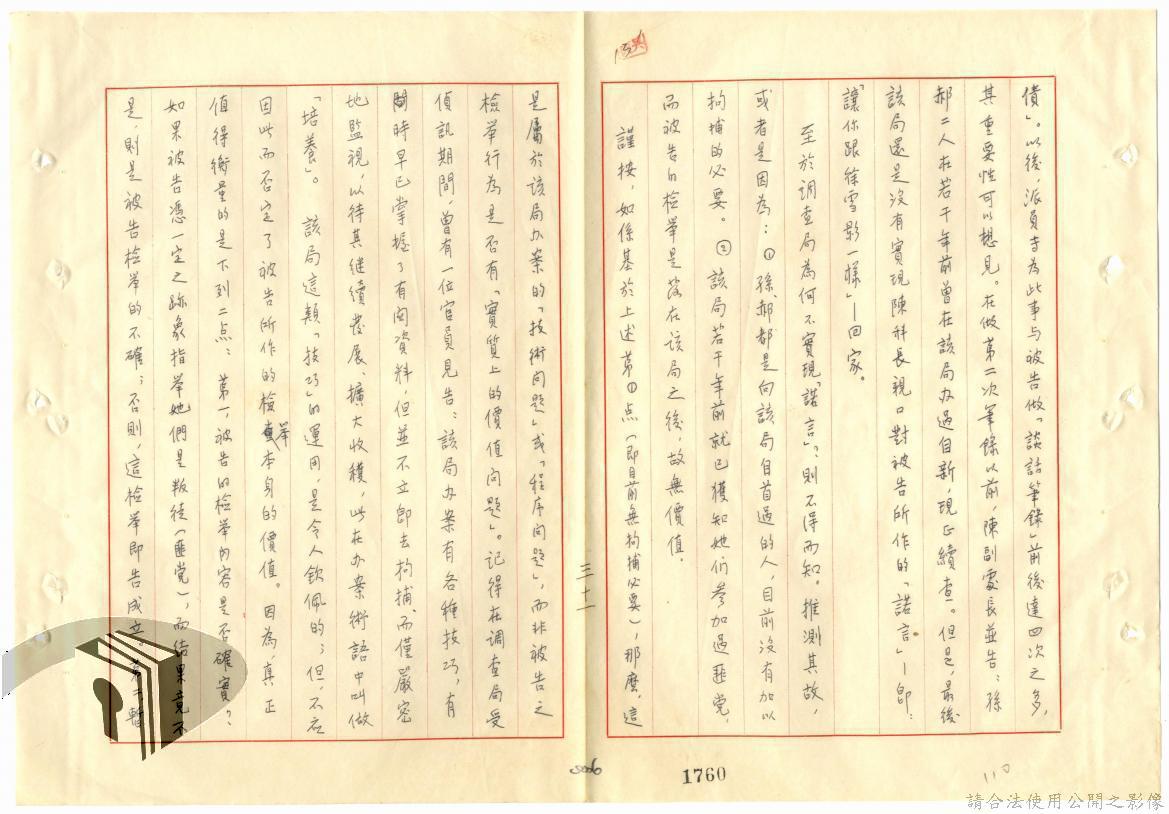 債」。以後，派員專為此事与被告做「談話筆錄」前後達四次之多，
其重要性可以想見。在做第二次筆錄以前，陳副處長並告：孫
郝二人在若干年前曾在該局办過自新，現正續查。但是，最後
該局還是沒有實現陳科長親口對被告所作的「諾言」—即：
「讓你跟徐雪影一樣」—回家。
至於調查局為何不實現「諾言」，則不得而知。推測其故，
或者是因為：①孫、郝都是向該局自首過的人，目前沒有加以
拘捕的必要。②該局若干年前就已獲知她们參加過匪党，
而被告的检举是落在該局之後，故無價值。
謹按，如係基於上述第①点（即目前無拘捕必要），那麼，這
是屬於該局办案的「技術问題」或「程序问題」，而非被告之
檢举行為是否有「實質上的價值问題」。記得在調查局受
偵訊期間，曾有一位官員見告：該局办案有各種技巧，有
時早已掌握了有関資料但並不立即去拘捕，而僅嚴密
地監視，以待其继續發展、擴大收穫，此在办案術語中叫做
「培養」。該局這類「技巧」的運用，是令人欽佩的；但，不应
因此而否定了被告所作的檢举本身的價值。因為，真正
值得衡量的是下列二点：第一，被告的检举內容是否確實？
如果被告憑一定之跡象指举她們是叛徒（匪党），而結果竟不
是，則是被告检举的不確；否則，這检举即告成立。第二，暫
三十一
1760
110
請合法使用公開之影像